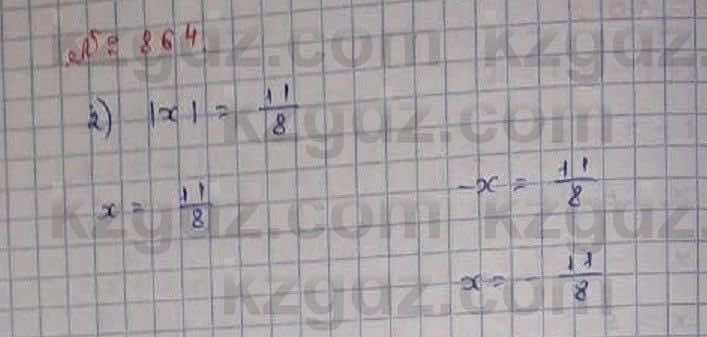 № 864.
2) |x| = 11/8
x = 11/8
-x = 11/8
x = - 11/8
kzgdz.com kzgdz.com
kzgdz.com
kzgdz.com kzgdz.com
kzgdz.com